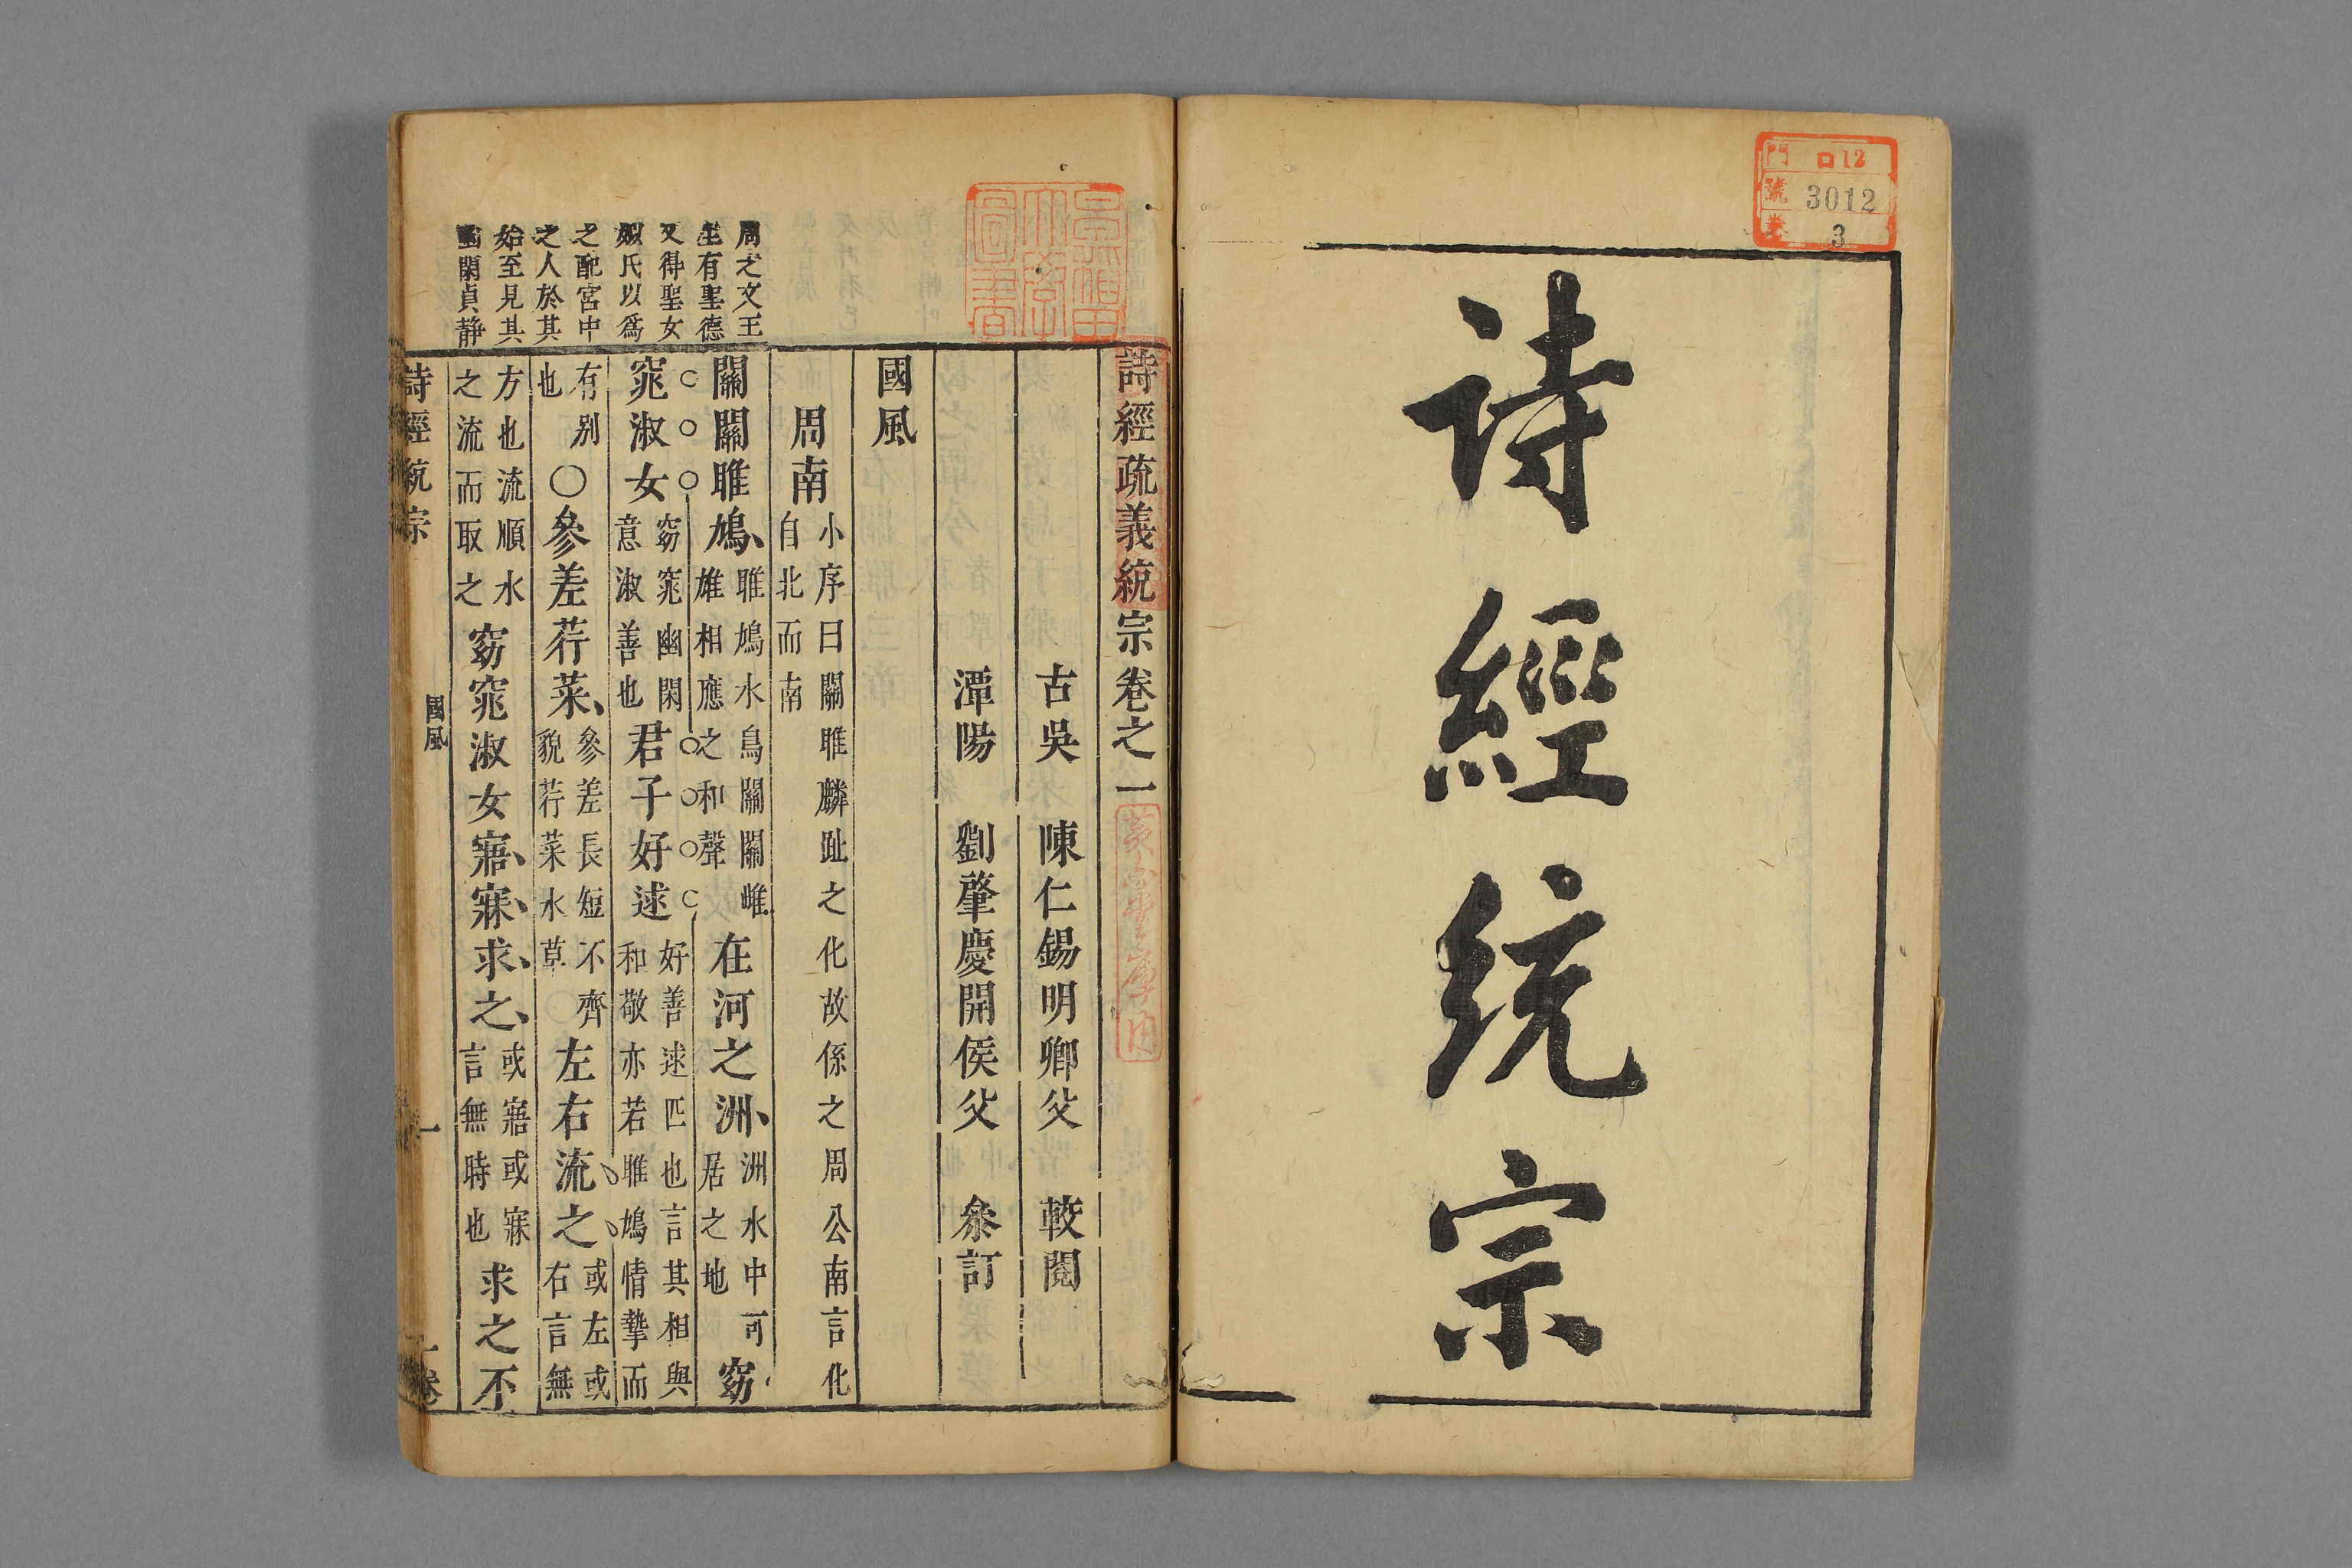 詩經統宗
門 口12
號 3012
卷 3
詩經疏義統宗卷之一
古吳 陳仁錫明卿父 較閱
潭陽 劉肇慶開侯父 叅訂
國風
周南
小序曰關雎麟趾之化故係之周公南言化
自北而南
關關雎鳩
雎鳩水鳥關關雌
雄相應之和聲
在河之洲
洲水中可
居之地
窈
窕淑女
窈窕幽閑
意淑善也
君子好逑
好善逑匹也言其相與
和敬亦若雎鳩情摯而
有别
也
○參差荇菜
參差長短不齊
貌荇菜水草
左右流之
或左或
右言無
方也流順水
之流而取之
窈窕淑女寤寐求之
或寤或寐
言無時也
求之不
周之文王
生有聖德
又得聖女
姒氏以爲
之配宮中
之人於其
始至見其
幽閑貞静
詩經統宗
國風
一
一卷